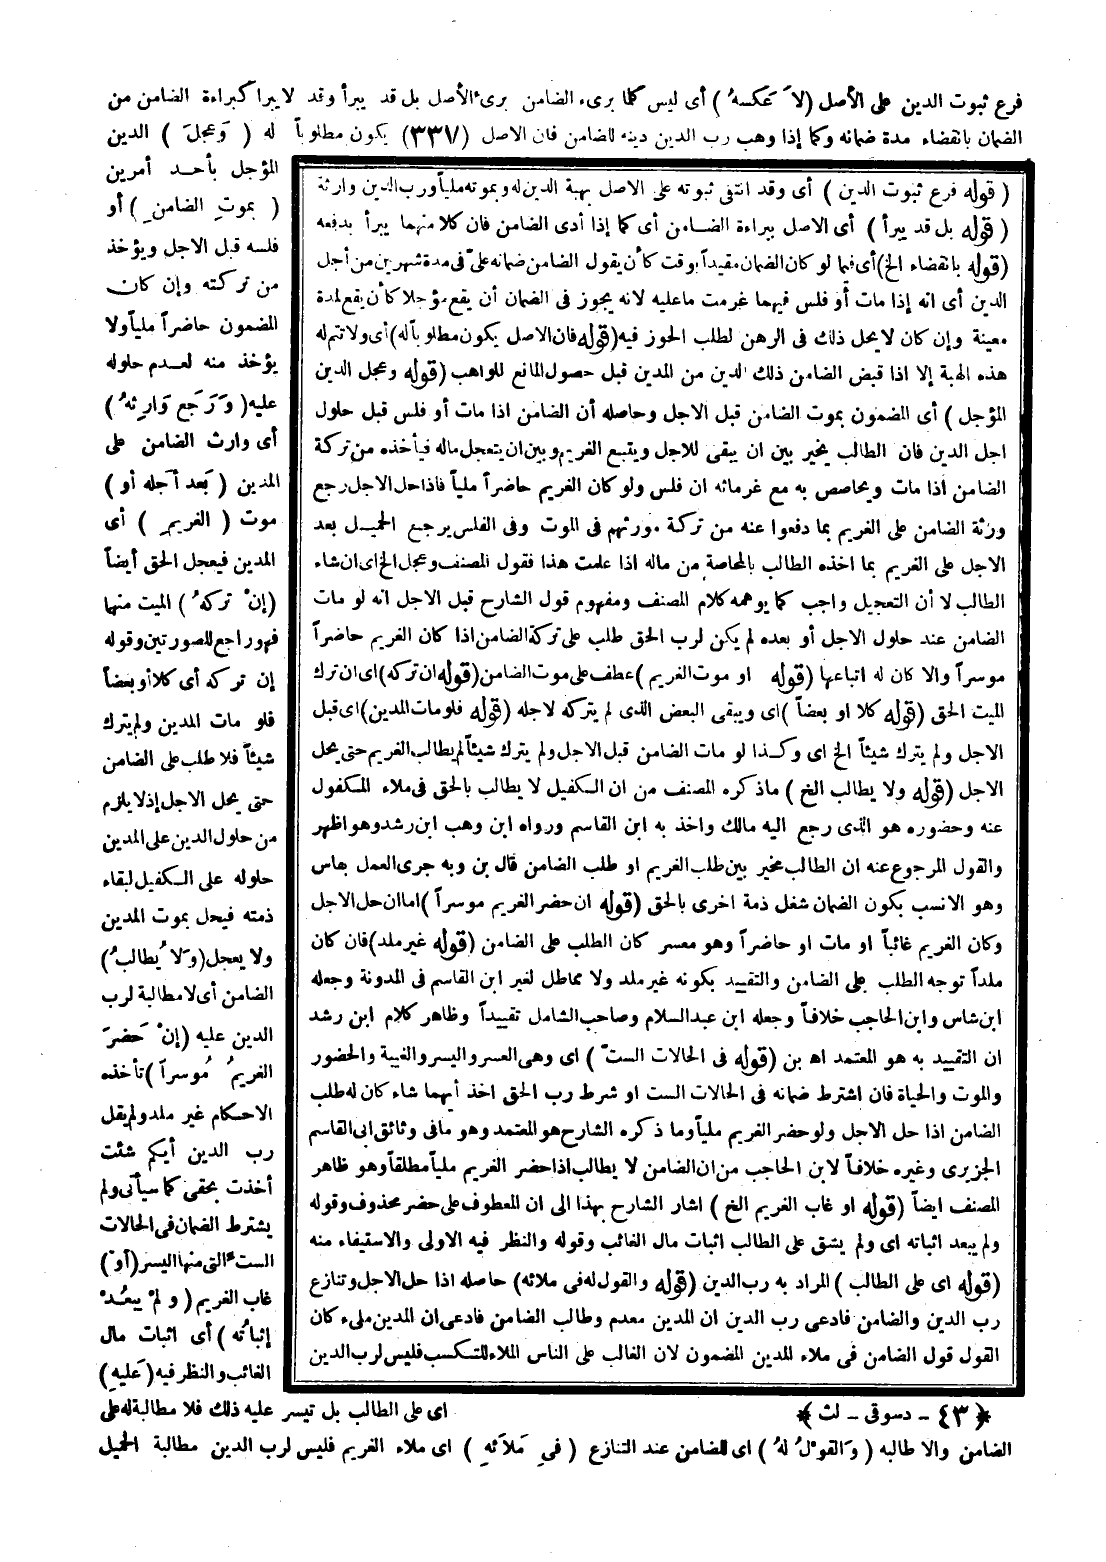 فرع ثبوت الدين على الأصل (لاَ عَكسهُ) أى ليس كلما برىء الضامن برىء الأصل بل قد يبرأ وقد لا يبرأ كبراءة الضامن من
الضمان بانقضاء مدة ضمانه وكما إذا وهب رب الدين دينه للضامن فان الاصل (٣٣٧) يكون مطلوباً له (وَعجلَ) الدين
المؤجل بأحد أمرين
(بموتِ الضامنِ) أو
فلسه قبل الاجل ويؤخذ
من تركته وإن كان
المضمون حاضراً ملياً ولا
يؤخذ منه لعدم حلوله
عليه (وَرَجع وَارِثهُ)
أى وارث الضامن على
المدين (بَعد أجله أو)
موت (الغريمِ) أى
المدين فيعجل الحق أيضاً
(إنْ تركهُ) الميت منهما
فهو راجع للصورتين وقوله
إن تركه أى كلا أو بعضاً
فلو مات المدين ولم يترك
شيئاً فلا طلب على الضامن
حتى يحل الاجل إذ لا يلزم
من حلول الدين على المدين
حلوله على الكفيل لبقاء
ذمته فيحل بموت المدين
ولا يعجل (وَلاَ يُطالبُ)
الضامن أى لا مطالبة لرب
الدين عليه (إنْ حَضرَ
الغريمُ مُوسراً) تأخذه
الاحكام غير ملد ولم يقل
رب الدين أيكم شئت
أخذت بحقى كما سيأتى ولم
يشترط الضمان فى الحالات
الست التى منها اليسر (أوْ)
غاب الغريم (ولمْ يبعُدْ
إثباتُه) أى اثبات مال
الغائب والنظر فيه (عليهِ)
اى على الطالب بل تيسر عليه ذلك فلا مطالبة له على
الضامن والا طالبه (وَالقوْلُ لهُ) اى للضامن عند التنازع (فىِ مَلاَئهِ) اى ملاء الغريم فليس لرب الدين مطالبة الحميل
(قوله فرع ثبوت الدين) أى وقد انتفى ثبوته على الاصل بهبة الدين له وبموته ملياً ورب الدين وارثه
(قوله بل قد يبرأ) أى الاصل ببراءة الضامن أى كما إذا أدى الضامن فان كلا منهما يبرأ بدفعه
(قوله بانقضاء الخ) أى فيما لو كان الضمان مقيداً بوقت كأن يقول الضامن ضمانه علىّ فى مدة شهرين من أجل
الدين أى انه إذا مات أو فلس فيهما غرمت ما عليه لانه يجوز فى الضمان أن يقع مؤجلا كأن يقع لمدة
معينة وإن كان لا يحل ذلك فى الرهن لطلب الحوز فيه (قوله فان الاصل يكون مطلوباً له) أى ولا تتم له
هذه الهبة إلا اذا قبض الضامن ذلك الدين من المدين قبل حصول المانع للواهب (قوله وعجل الدين
المؤجل) أى المضمون بموت الضامن قبل الاجل وحاصله أن الضامن اذا مات أو فلس قبل حلول
اجل الدين فان الطالب يخير بين ان يبقى للاجل ويتبع الغريم وبين ان يتعجل ماله فيأخذه من تركة
الضامن اذا مات ويحاصص به مع غرمائه ان فلس ولو كان الغريم حاضراً ملياً فاذا حل الاجل رجع
ورثة الضامن على الغريم بما دفعوا عنه من تركة مورثهم فى الموت وفى الفلس يرجع الحميل بعد
الاجل على الغريم بما اخذه الطالب بالمحاصة من ماله اذا علمت هذا فقول المصنف وعجل الخ اى ان شاء
الطالب لا أن التعجيل واجب كما يوهمه كلام المصنف ومفهوم قول الشارح قبل الاجل انه لو مات
الضامن عند حلول الاجل أو بعده لم يكن لرب الحق طلب على تركة الضامن اذا كان الغريم حاضراً
موسراً والا كان له اتباعها (قوله او موت الغريم) عطف على موت الضامن (قوله ان تركه) اى ان ترك
الميت الحق (قوله كلا او بعضاً) اى ويبقى البعض الذى لم يتركه لاجله (قوله فلو مات المدين) اى قبل
الاجل ولم يترك شيئاً الخ اى وكذا لو مات الضامن قبل الاجل ولم يترك شيئاً لم يطالب الغريم حتى يحل
الاجل (قوله ولا يطالب الخ) ما ذكره المصنف من ان الكفيل لا يطالب بالحق فى ملاء المكفول
عنه وحضوره هو الذى رجع اليه مالك واخذ به ابن القاسم ورواه ابن وهب ابن رشد وهو اظهر
والقول المرجوع عنه ان الطالب مخير بين طلب الغريم او طلب الضامن قال بن وبه جرى العمل بفاس
وهو الانسب بكون الضمان شغل ذمة اخرى بالحق (قوله ان حضر الغريم موسراً) اما ان حل الاجل
وكان الغريم غائباً او مات او حاضراً وهو معسر كان الطلب على الضامن (قوله غير ملد) فان كان
ملداً توجه الطلب على الضامن والتقييد بكونه غير ملد ولا مماطل لغير ابن القاسم فى المدونة وجعله
ابن شاس وابن الحاجب خلافاً وجعله ابن عبد السلام وصاحب الشامل تقييداً وظاهر كلام ابن رشد
ان التقييد به هو المعتمد اه بن (قوله فى الحالات الست) اى وهى العسر واليسر والغيبة والحضور
والموت والحياة فان اشترط ضمانه فى الحالات الست او شرط رب الحق اخذ أيهما شاء كان له طلب
الضامن اذا حل الاجل ولو حضر الغريم ملياً وما ذكره الشارح هو المعتمد وهو ما فى وثائق ابى القاسم
الجزيرى وغيره خلافاً لابن الحاجب من ان الضامن لا يطالب اذا حضر الغريم ملياً مطلقاً وهو ظاهر
المصنف ايضاً (قوله او غاب الغريم الخ) اشار الشارح بهذا الى ان المعطوف على حضر محذوف وقوله
ولم يبعد اثباته اى ولم يشق على الطالب اثبات مال الغائب وقوله والنظر فيه الاولى والاستيفاء منه
(قوله اى على الطالب) المراد به رب الدين (قوله والقول له فى ملائه) حاصله اذا حل الاجل وتنازع
رب الدين والضامن فادعى رب الدين ان المدين معدم وطالب الضامن فادعى ان المدين ملىء كان
القول قول الضامن فى ملاء المدين المضمون لان الغالب على الناس الملاء للتكسب فليس لرب الدين
﴿٤٣ - دسوقى - لث﴾